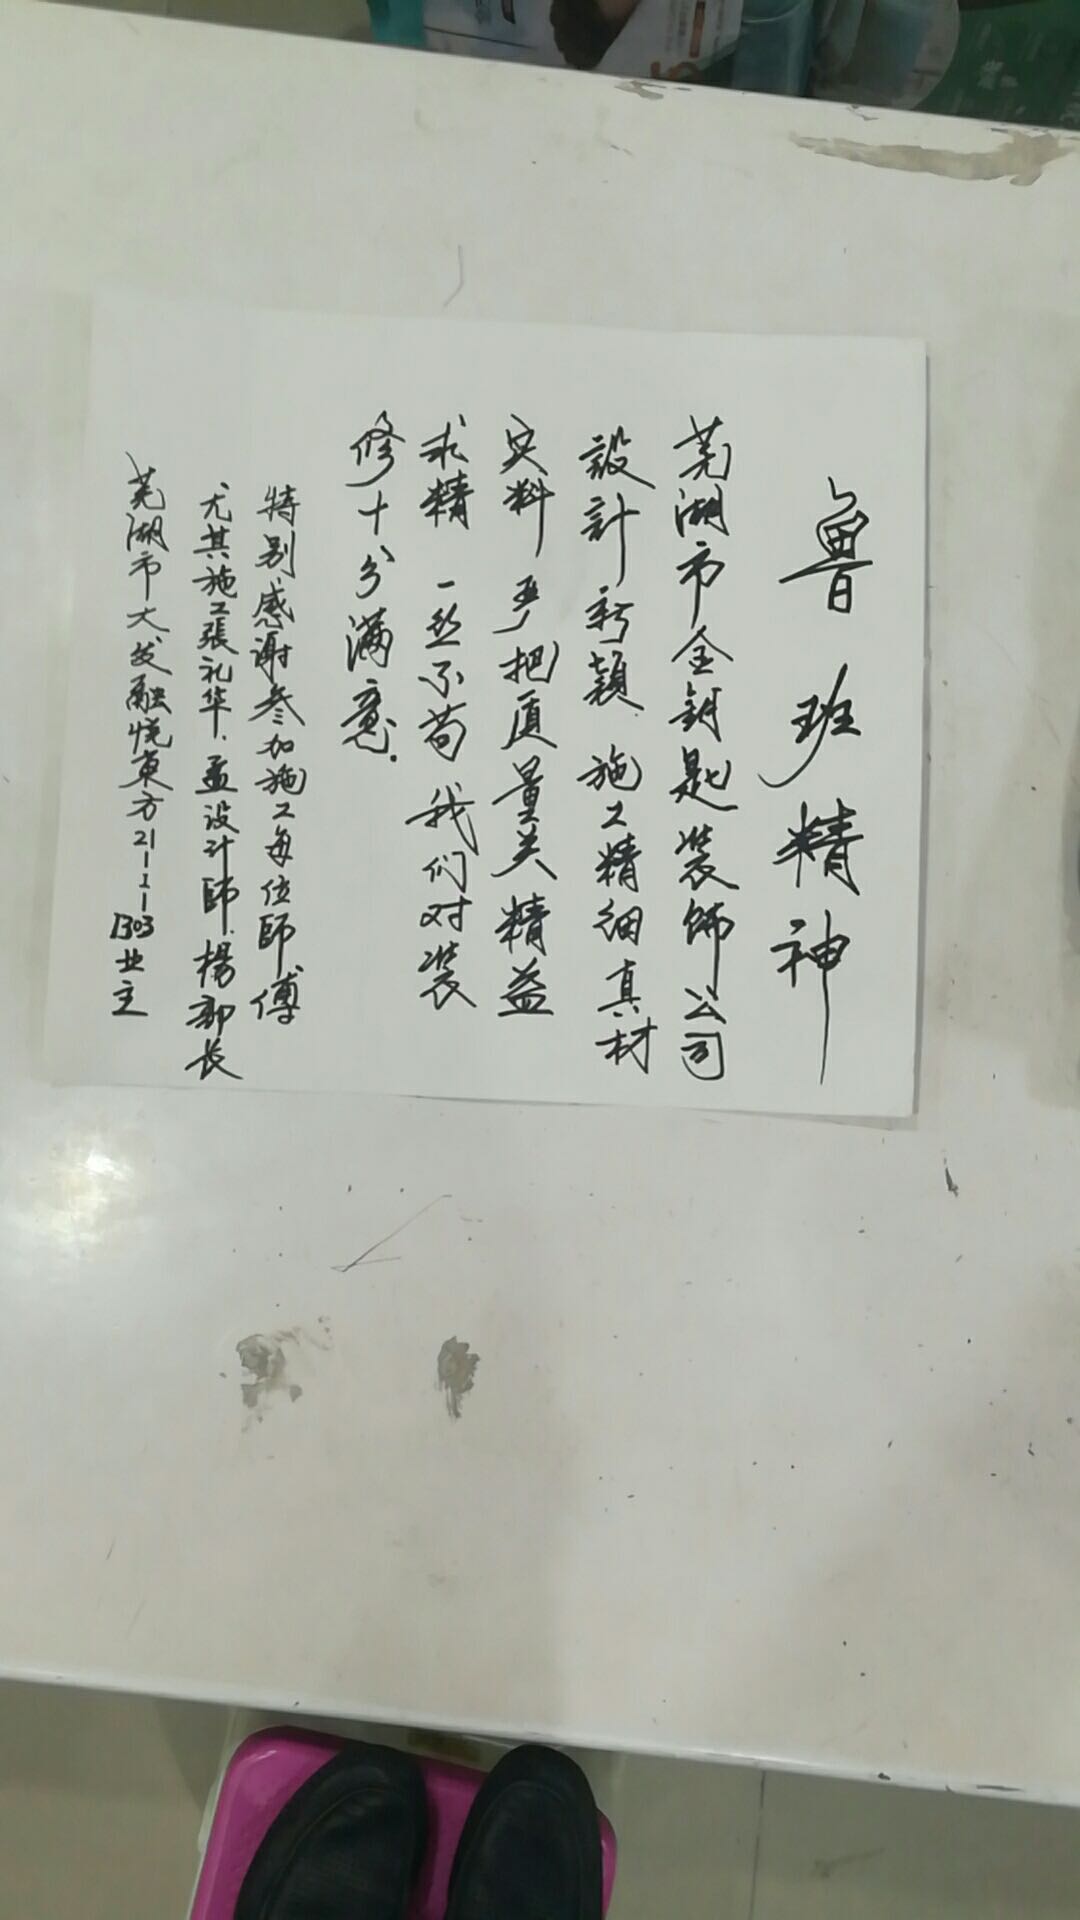 魯班精神
芜湖市金钥匙装饰公司
設計新颖.施工精细真材
实料 严把质量关精益
求精 一丝不苟 我们对装
修十分满意.
特别感谢参加施工每位師傅
尤其施工張礼华.孟设计師.楊部长
芜湖市大发融悦東方21-1-1303业主